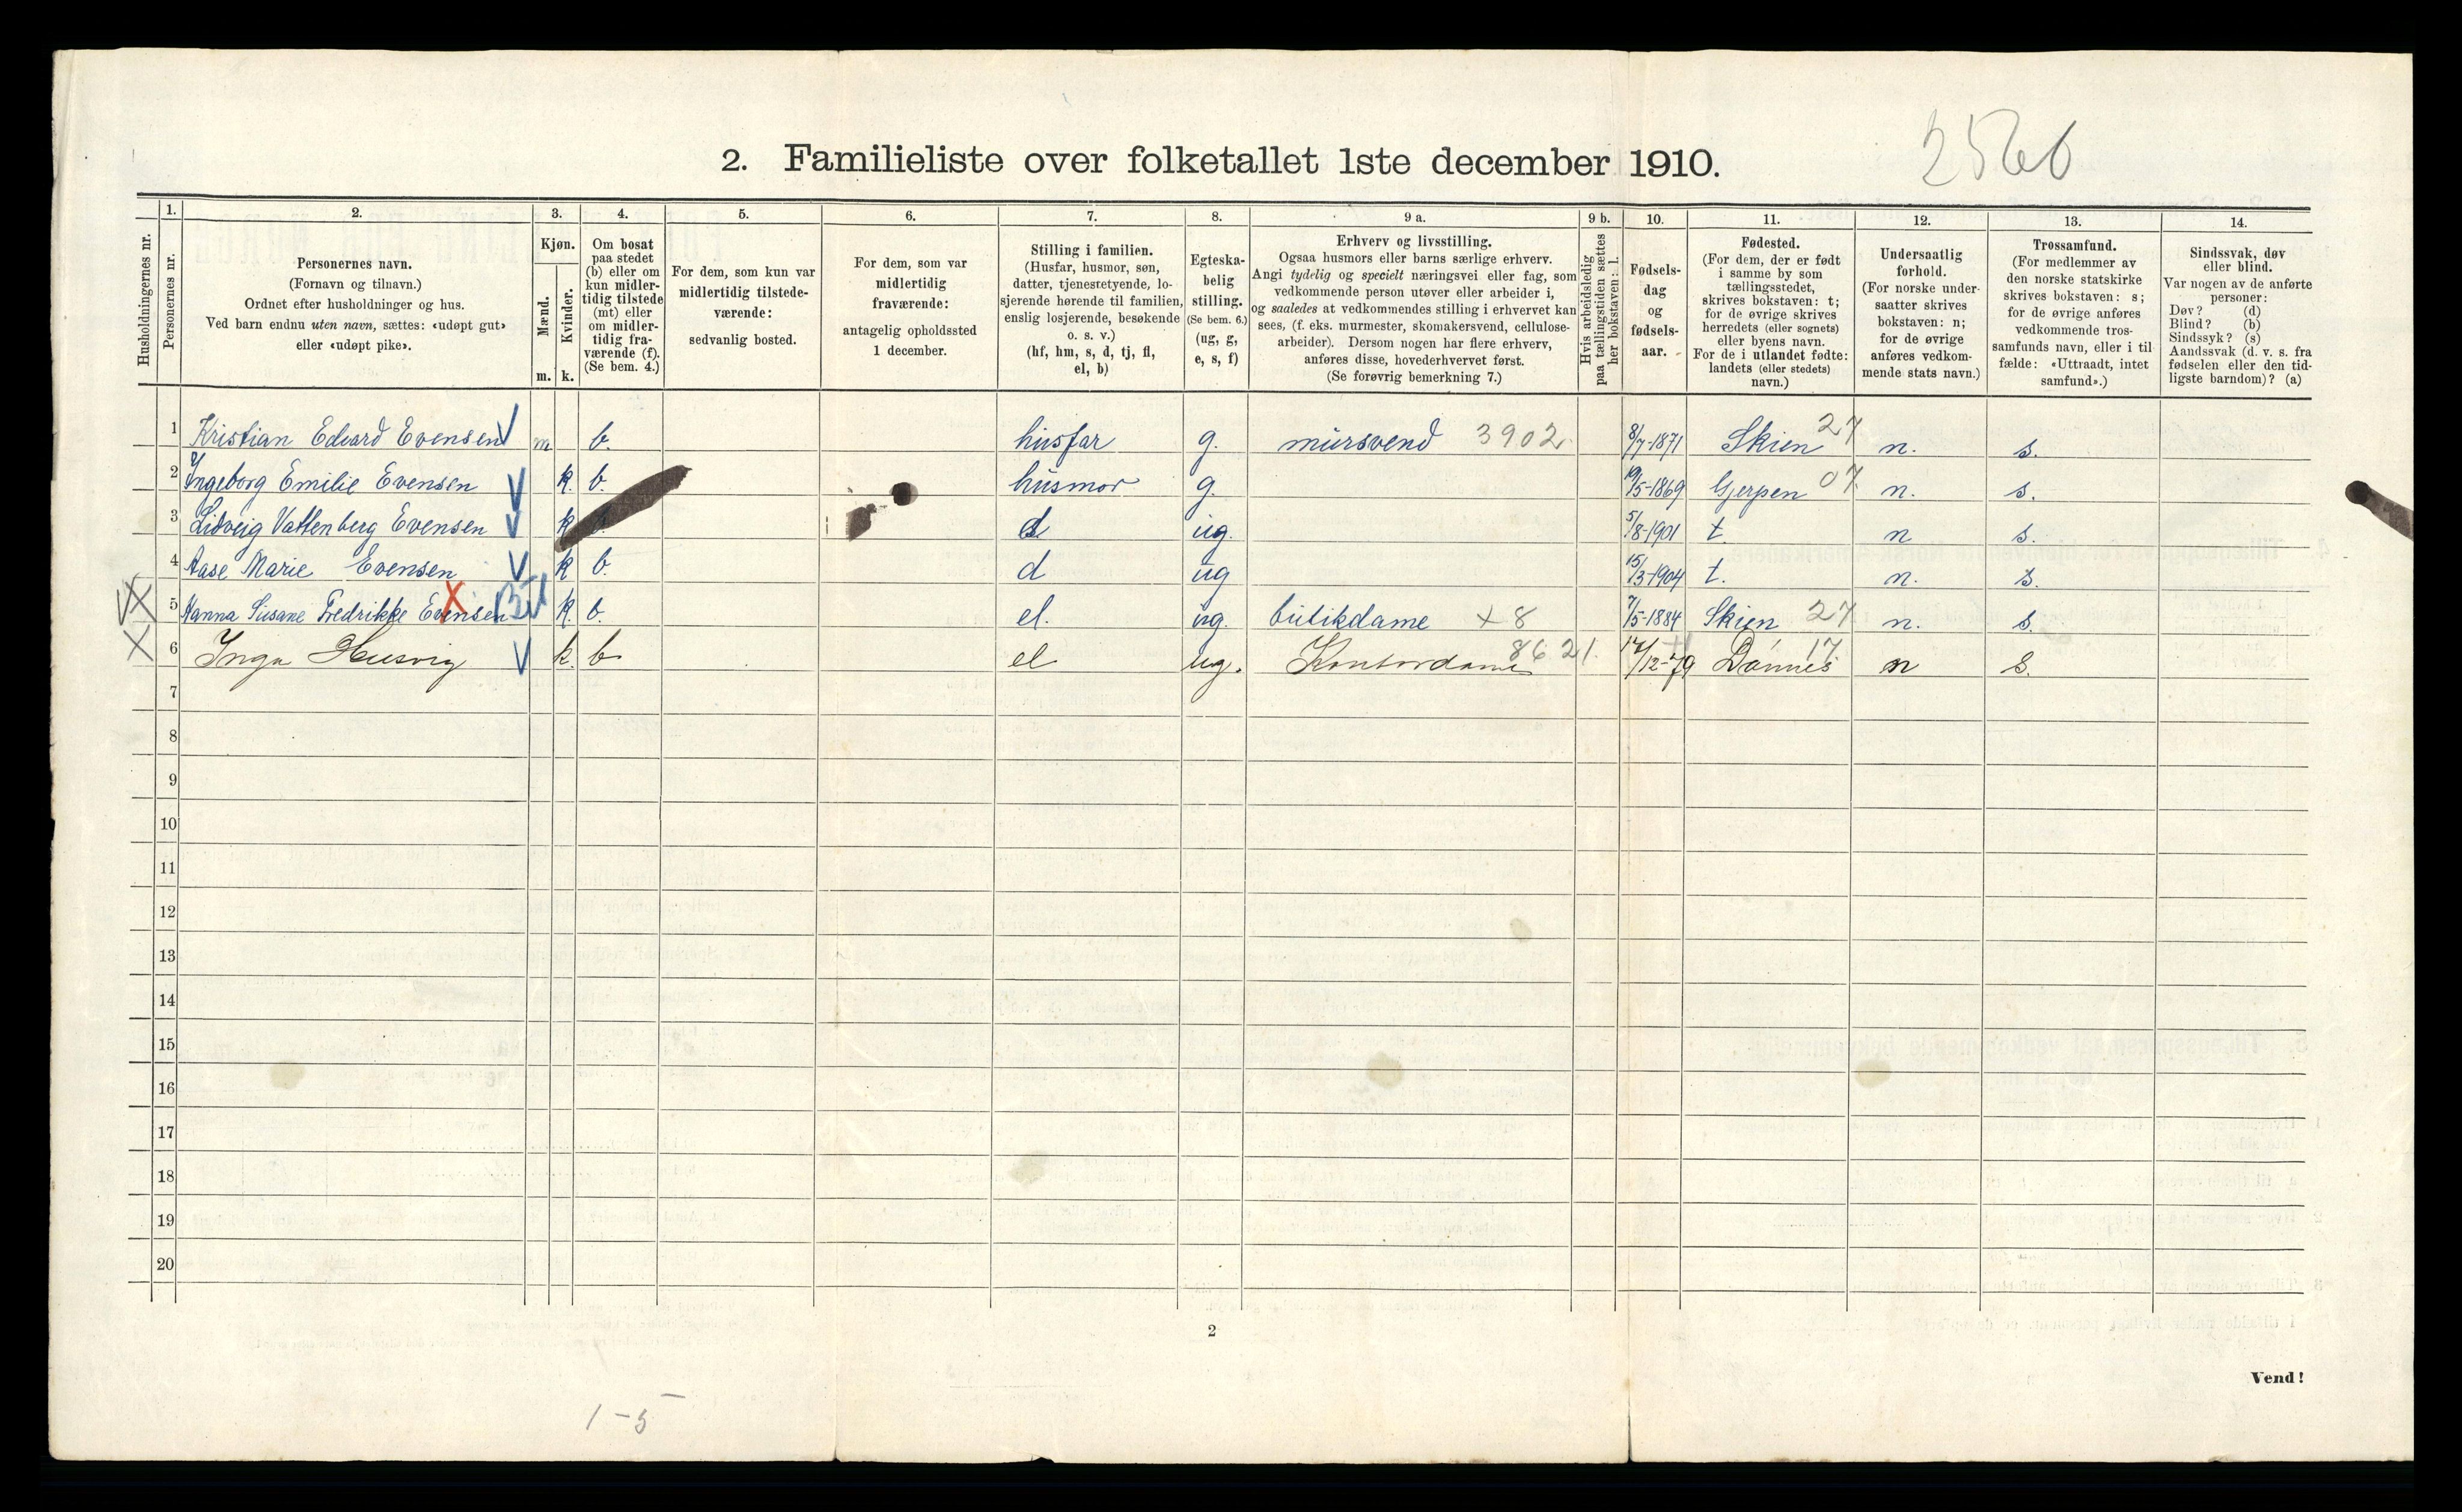 2560
2. Familieliste over folketallet 1ste december 1910.
Husholdningernes nr.
1.
Personernes nr.
2.
Personernes navn.
(Fornavn og tilnavn.)
Ordnet efter husholdninger og hus.
Ved barn endnu uten navn, sættes: «udøpt gut»
eller «udøpt pike».
3.
Kjøn.
Mænd.
Kvinder.
m. k.
4.
Om bosat
paa stedet
(b) eller om
kun midler-
tidig tilstede
(mt) eller
om midler-
tidig fra-
værende (f).
(Se bem. 4.)
5.
For dem, som kun var
midlertidig tilstede-
værende:
sedvanlig bosted.
6.
For dem, som var
midlertidig
fraværende:
antagelig opholdssted
1 december.
7.
Stilling i familien.
(Husfar, husmor, søn,
datter, tjenestetyende, lo-
sjerende hørende til familien,
enslig losjerende, besøkende
o. s. v.)
(hf, hm, s, d, tj, fl,
el, b)
8.
Egteska-
belig
stilling.
(Se bem. 6.)
(ug, g,
e, s, f)
9 a.
Erhverv og livsstilling.
Ogsaa husmors eller barns særlige erhverv.
Angi tydelig og specielt næringsvei eller fag, som
vedkommende person utøver eller arbeider i,
og saaledes at vedkommendes stilling i erhvervet kan
sees, (f. eks. murmester, skomakersvend, cellulose-
arbeider). Dersom nogen har flere erhverv,
anføres disse, hovederhvervet først.
(Se forøvrig bemerkning 7.)
9 b.
Hvis arbeidsledig
paa tællingstiden sættes
her bokstaven: l.
10.
Fødsels-
dag
og
fødsels-
aar.
11.
Fødested.
(For dem, der er født
i samme by som
tællingsstedet,
skrives bokstaven: t;
for de øvrige skrives
herredets (eller sognets)
eller byens navn.
For de i utlandet fødte:
landets (eller stedets)
navn.)
12.
Undersaatlig
forhold.
(For norske under-
saatter skrives
bokstaven: n;
for de øvrige
anføres vedkom-
mende stats navn.)
13.
Trossamfund.
(For medlemmer av
den norske statskirke
skrives bokstaven: s;
for de øvrige anføres
vedkommende tros-
samfunds navn, eller i til-
fælde: «Uttraadt, intet
samfund».)
14.
Sindssvak, døv
eller blind.
Var nogen av de anførte
personer:
Døv? (d)
Blind? (b)
Sindssyk? (s)
Aandssvak (d. v. s. fra
fødselen eller den tid-
ligste barndom)? (a)
1 Kristian Edvard Evensen m b. husfar g. mursvend 3902 8/7-1871 Skien 27 n. s.
2 Ingeborg Emilie Evensen k. b. husmor g. 19/5-1869 Gjerpen 07 n. s.
3 Lidveig Vattenberg Evensen k b. d ug. 5/8-1901 t. n s.
4 Aase Marie Evensen k b. d ug 15/3-1904 t. n. s.
X 5 Hanna Susane Fredrikke Evensen X k. b. el. ug. butikdame X8 7/5-1884 Skien 27 n. s.
X 6 Inga Husvig k. b el ug. Kontordame 8621. 17/12-79 Dønnes 17 n s.
7
8
9
10
11
12
13
14
15
16
17
18
19
20
2
Vend!
1-5